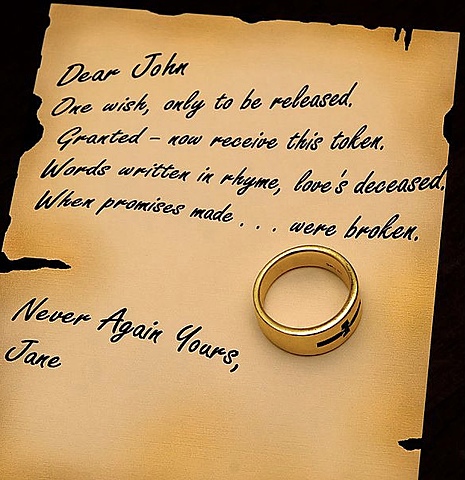 Dear John
One wish, only to be released.
Granted – now receive this token.
Words written in rhyme, love's deceased.
When promises made . . . were broken.
Never Again Yours,
Jane